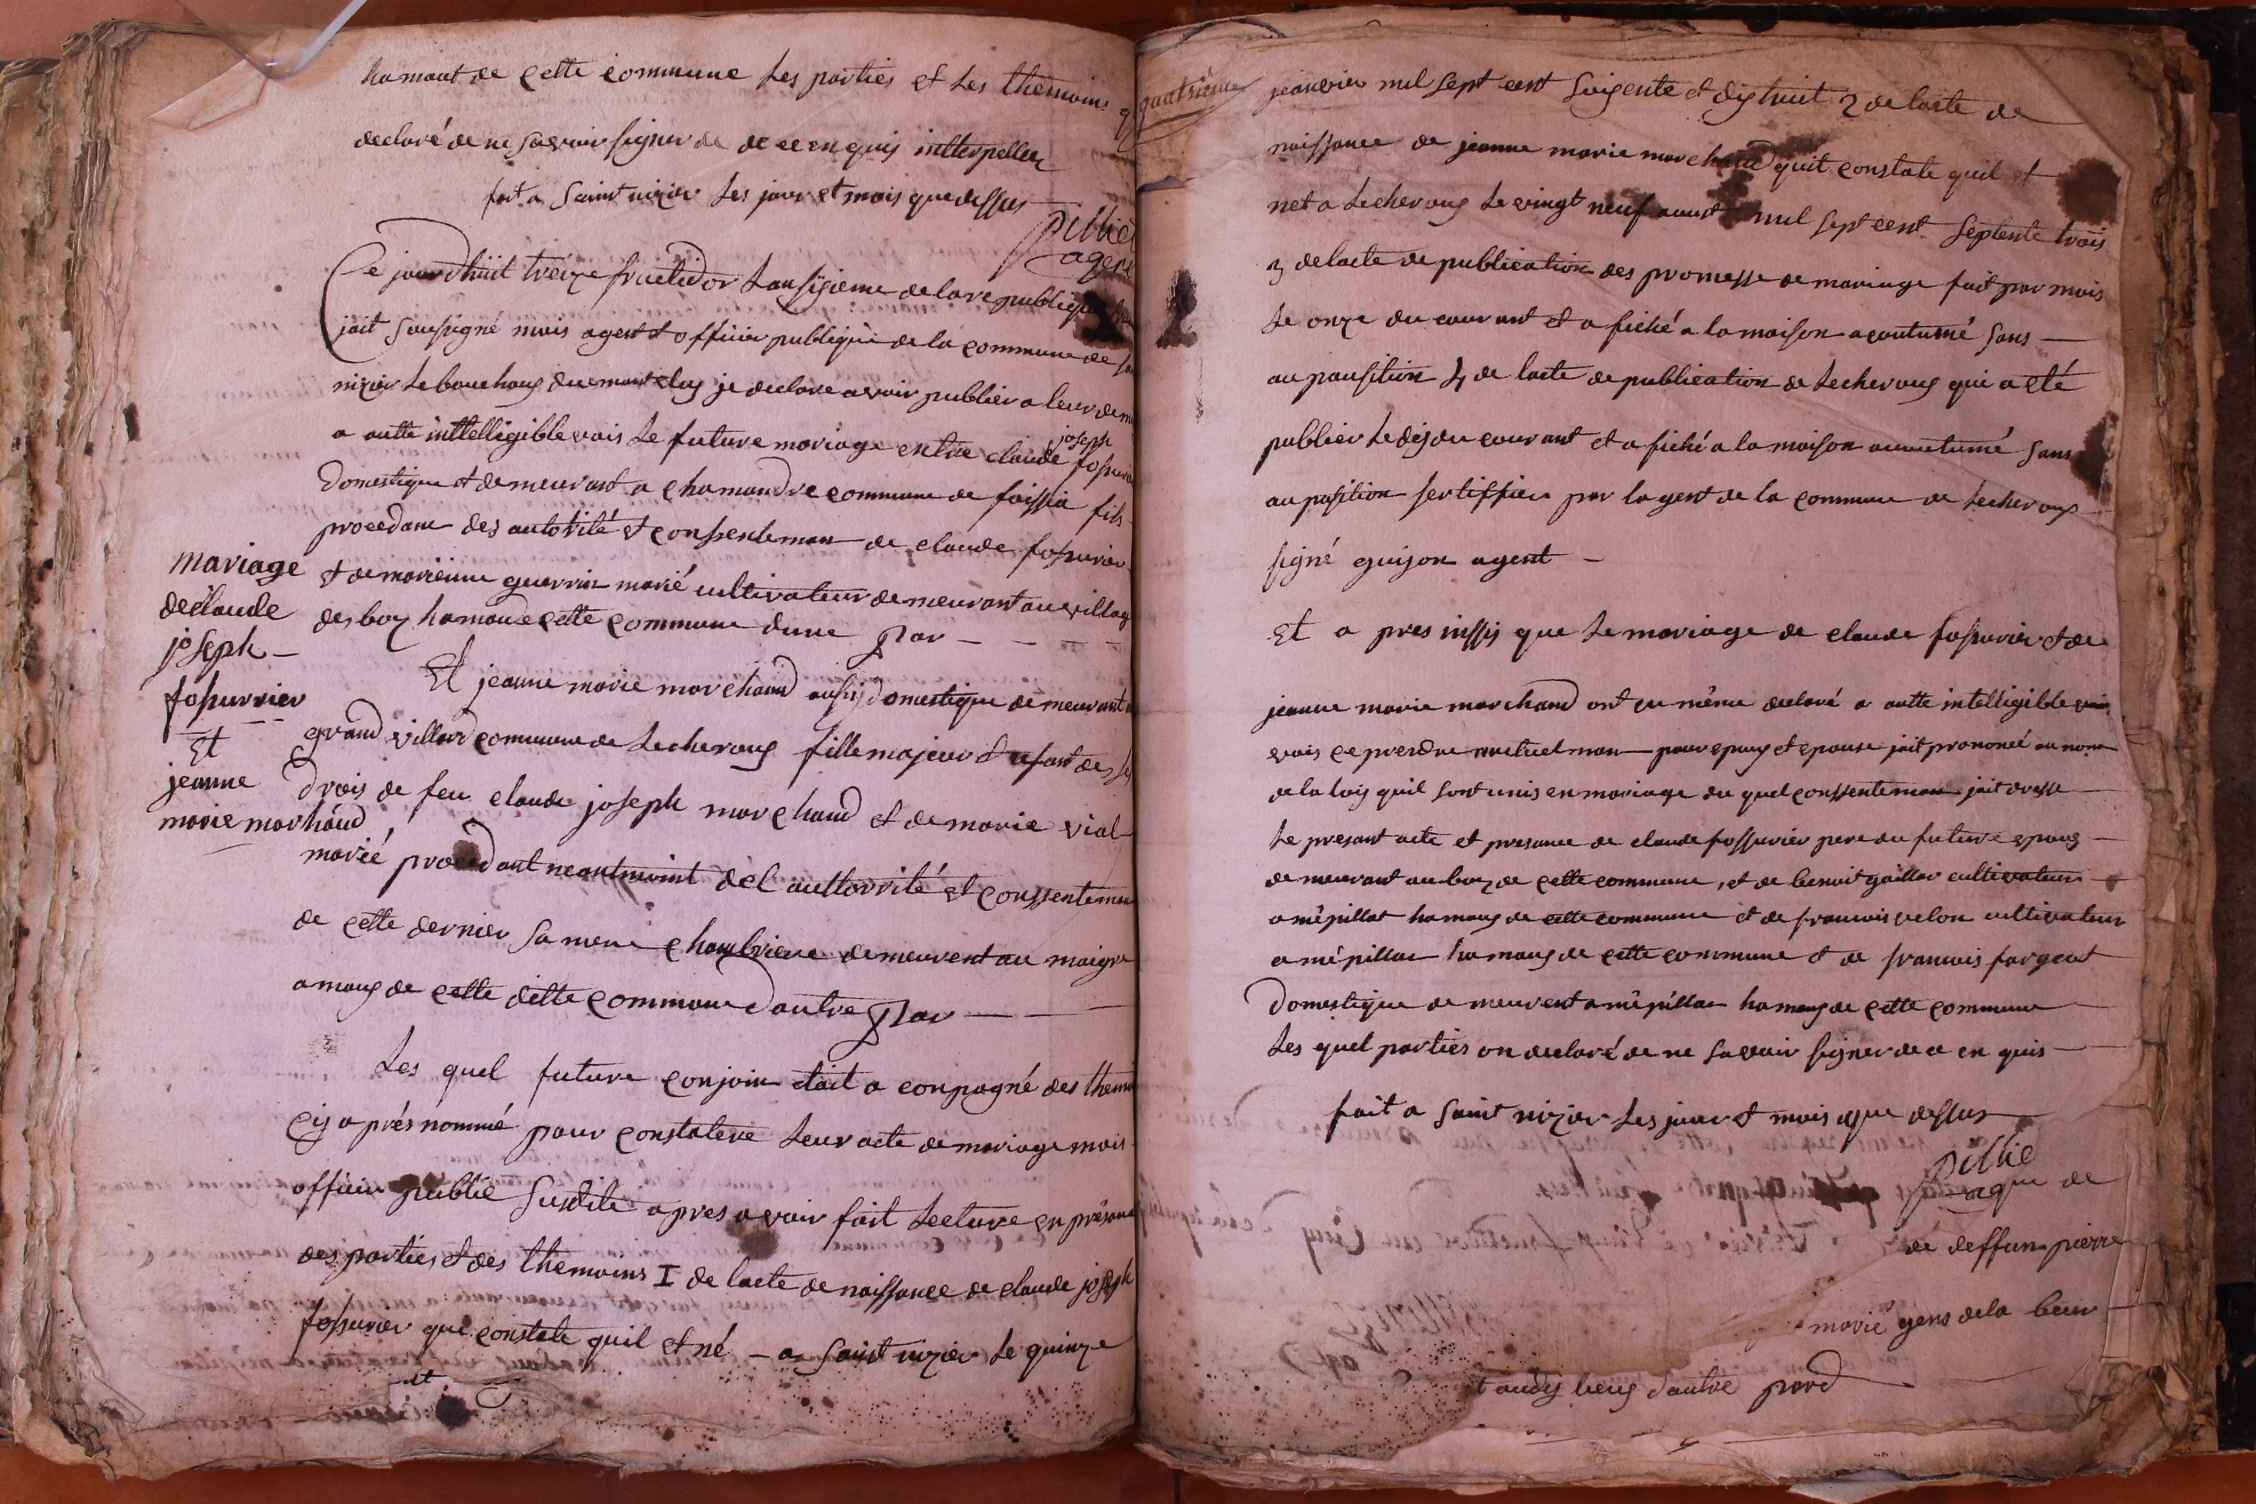 hamaut de cette commune les parties et les themoins
declaré de ne savoir signer de de ce en quis intterpeller
fait a saint nizier les jour et mois que dessus
pillie
agent
Ce jourdhuit treize fructidor lan sixieme de la republique
jait sousigné mois agent et officier publique de la commune de
nizier le bouchoux du mont je declare avoir publier a leur
a autte inttelligible vois le future mariage entre claude joseph fossurier
domestique et demeurant a chamandre commune de foissia fils
procedant des autorité et conssenteman de claude fossurier
et de marienne guerrin marié cultivateur demeurant au village
des boz hamau de cette commune dune par
Et jeanne marie marchand aussy domestique demeurant
grand villard commune de lecheroux fille majeur et usant de ses
drois de feu claude joseph marchand et de marie vial
marié procedant neantmoint del auttorrité et conssenteman
de cette dernier sa mere chambriere demeurent au maigre
amaux de cette ditte commune dautre par
Les quel future conjoin etait a conpagné des themoins
cy a prés nommé pour constatere leur acte de mariage mois
officier publie susdite apres avoir fait lecture en présance
des partiés et des themoins I de lacte de naissance de claude joseph
fossurier que constate quil et né - a saint nizier le quinze
mariage
de claude
joseph -
fossurrier
Et
jeanne
marie marhand
quatrieme
jeanvier mil sept cent soigente et dix huit 2 de lacte de
naissance de jeanne marie marchand quit constate quil et
net a lecheroux le vingt neuf aout mil sept cent septente trois
3 de lacte de publication des promesse de mariage fait par mois
le onze du courant et a fiché a la maison acoutumé sans
au pausition 4 de lacte de publication de lecheroux qui a été
publier le dix du courant et a fiché a la maison acoutumé sans
au position sertiffier par lagent de la commune de lecheroux
signé guijon agent -
Et a pres inssy que le mariage de claude fossurier et de
jeanne marie marchand ont eu même declaré a autte intelligible
vois ce prendre mutuelman pour epoux et epouse jait prononcé au nom
de la lois quil sont unis en mariage du quel conssenteman jait dressé
le presant acte et presance de claude fossurier pere du future epoux
demeurant au boz de cette commune, et de benoit gaillar cultivateur
a mépillat hamaux de cette commune et de francois velon cultivateur
a mépillat hamaux de cette commune et de francois fargeot
domestique demeurent a mépillat hamaux de cette commune
les quel parties on declaré de ne savoir signer de ce en quis
fait a saint nizier les jour et mois que dessus
pillie
de
de deffun pierre
marié gens de la beur
audy lieux dautre pard